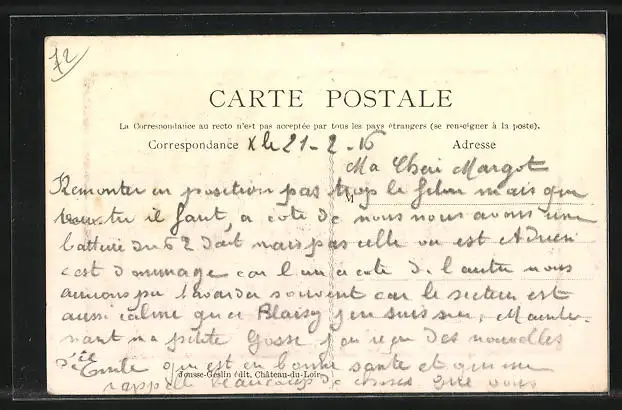 72
CARTE POSTALE
La Correspondance au recto n'est pas acceptée par tous les pays étrangers (se renseigner à la poste).
Correspondance Adresse
X le 21-2-16
Ma Cheri Margot
Remonter en position pas trop le film mais que
veux-tu il faut, a cote de nous nous avons une
batterie du 62 mais pas celle ou est Adrien
c'est dommage car l'un a cote de l'autre nous
aurions pu bavarder souvent car le secteur est
aussi calme qu'a Blaisy j'en suis sur, Mainte-
nant ma petite Gosse j'ai reçu des nouvelles
d'Emile qui est en bonne sante et qui me
rappelle beaucoup de choses que vous
Jousse-Geslin édit. Château-du-Loir